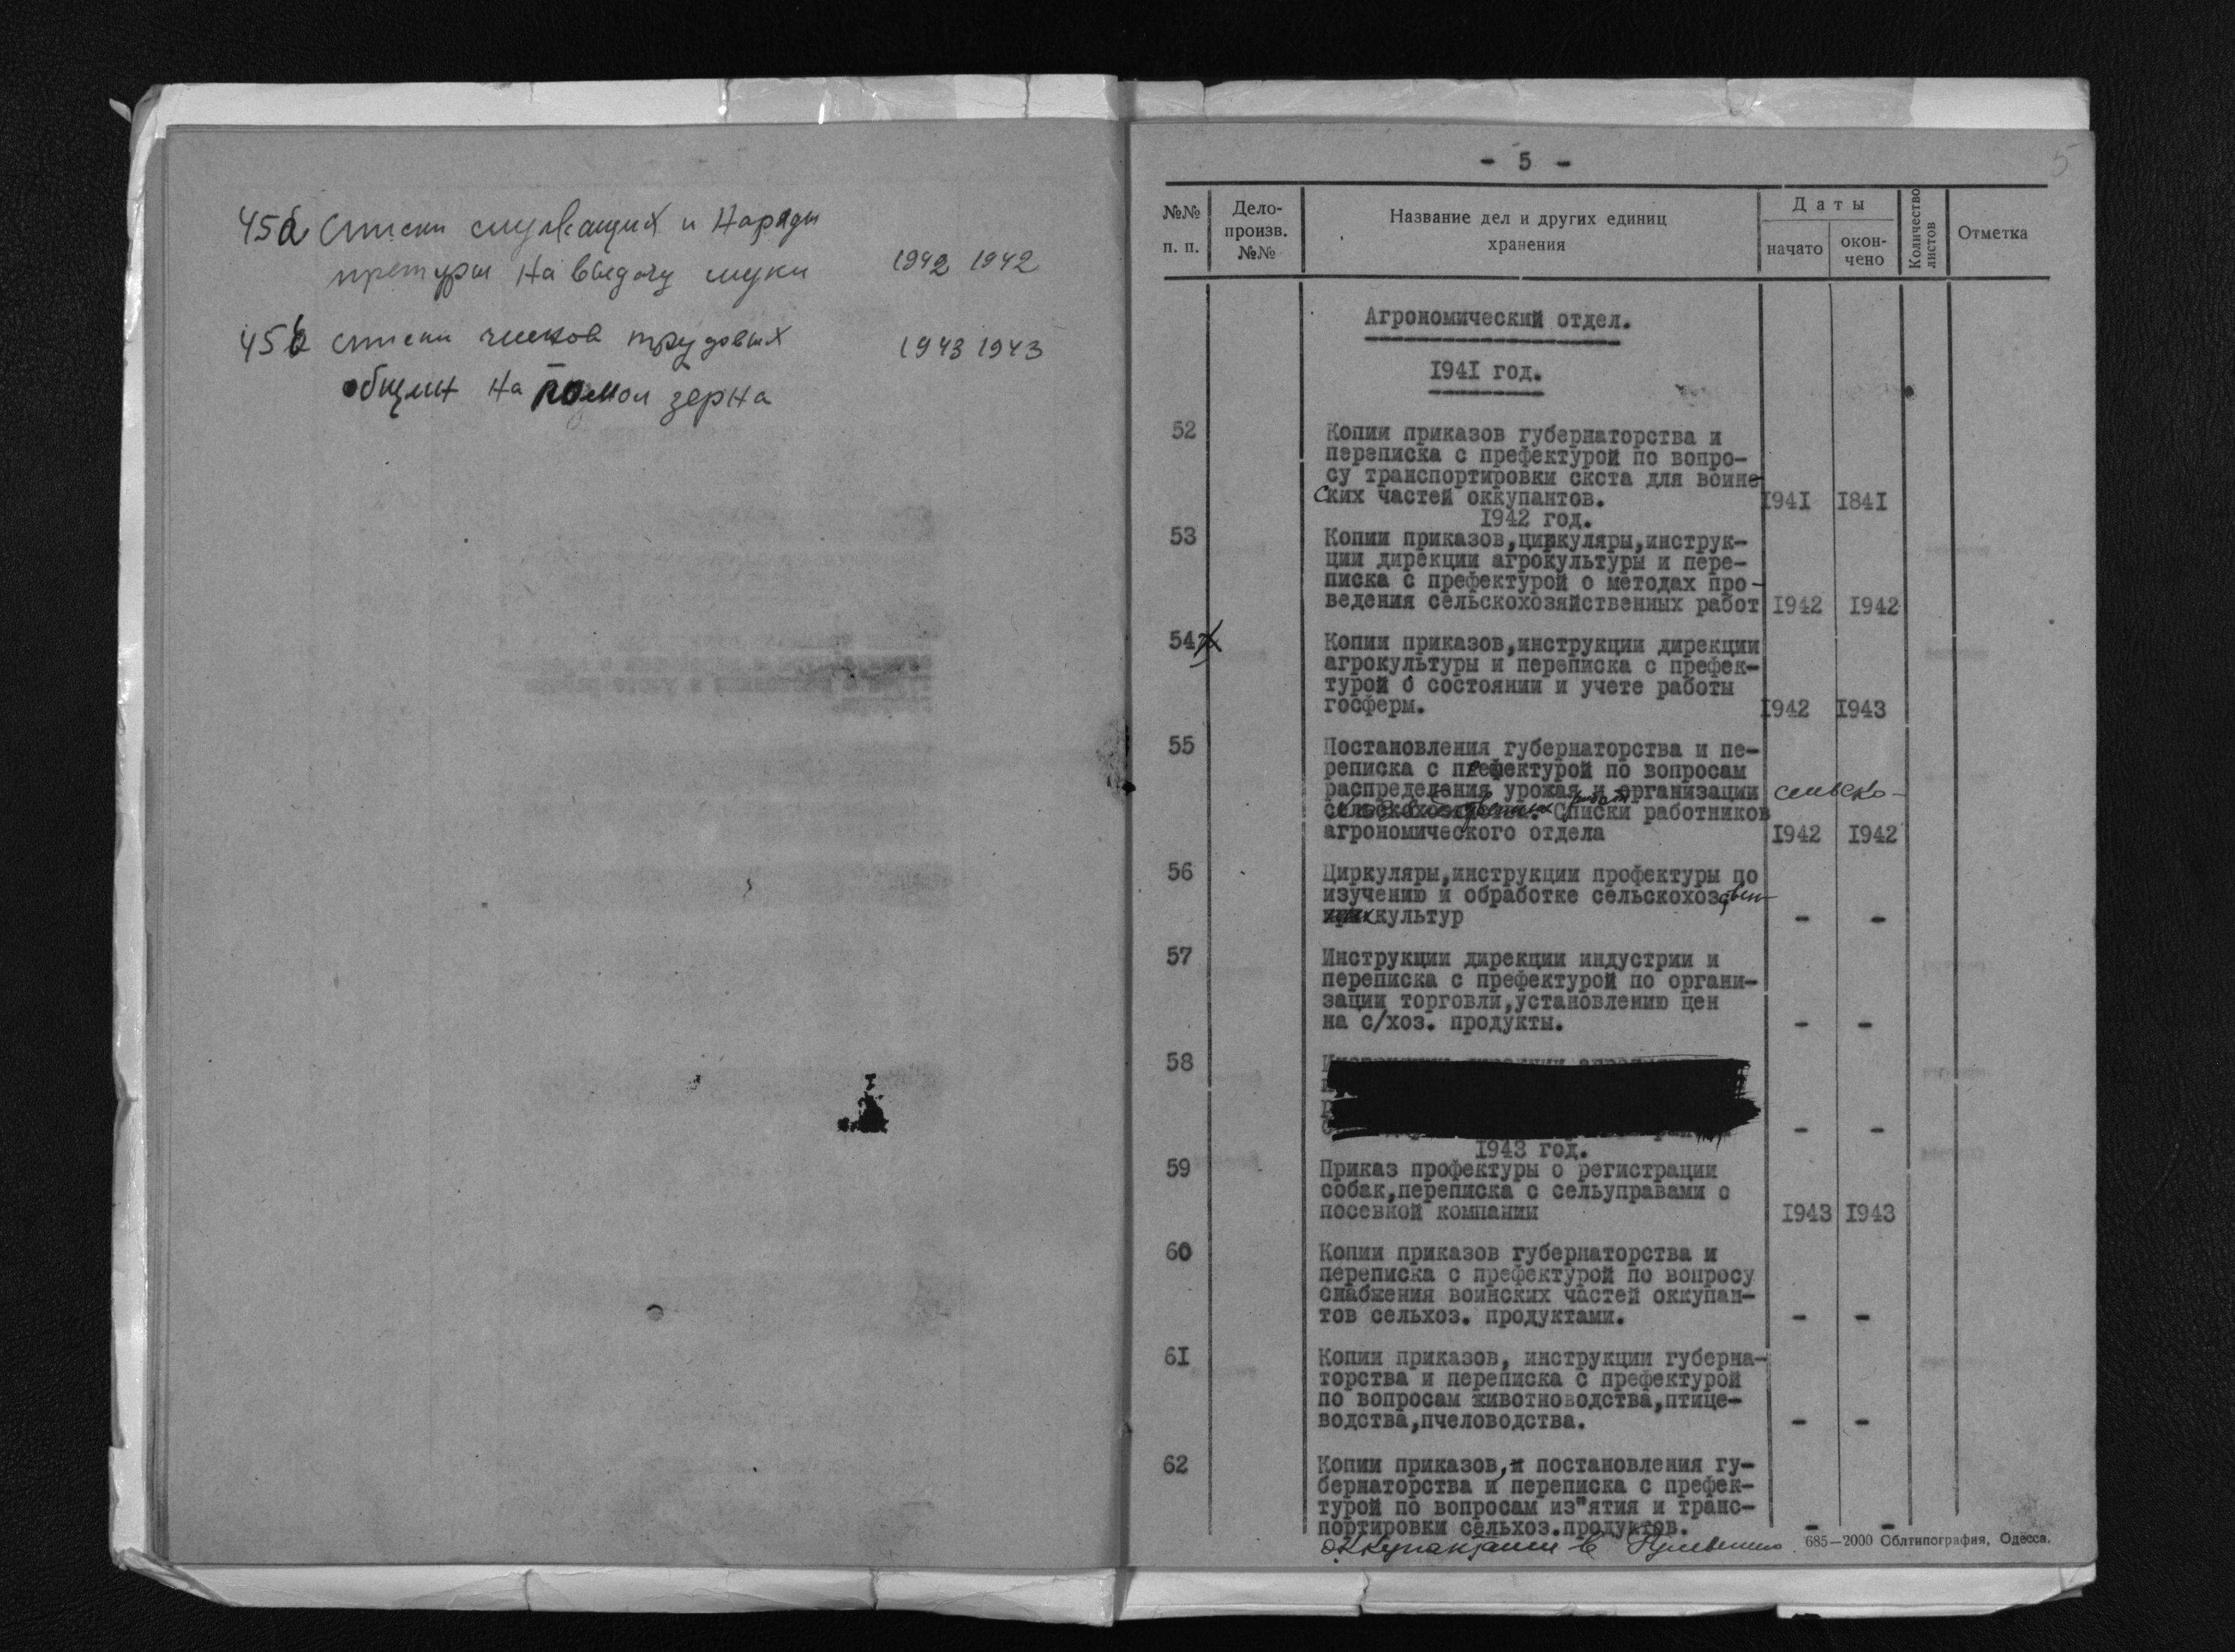 45а Списки служащих и Наряды
претуры на выдачу муки 1942 1942
45б списки членов трудовых 1943 1943
общин на помол зерна
- 5 -
5
№№ п. п.
Дело-произв. №№
Название дел и других единиц хранения
Даты
начато
окон-чено
Количество листов
Отметка
Агрономический отдел.
1941 год.
52 Копии приказов губернаторства и
переписка с префектурой по вопро-
су транспортировки скота для воинс
ских частей оккупантов. 1941 1841
1942 год.
53 Копии приказов,циркуляры,инструк-
ции дирекции агрокультуры и пере-
писка с префектурой о методах про-
ведения сельскохозяйственных работ 1942 1942
54 Копии приказов,инструкции дирекции
агрокультуры и переписка с префек-
турой о состоянии и учете работы
госферм. 1942 1943
55 Постановления губернаторства и пе-
реписка с префектурой по вопросам
распределения урожая и организации сельско-
работ Списки работников
агрономического отдела 1942 1942
56 Циркуляры,инструкции профектуры по
изучению и обработке сельскохозяйствен-
ных культур - -
57 Инструкции дирекции индустрии и
переписка с префектурой по органи-
зации торговли,установлению цен
на с/хоз. продукты. - -
58
- -
1943 год.
59 Приказ профектуры о регистрации
собак,переписка с сельуправами о
посевной компании 1943 1943
60 Копии приказов губернаторства и
переписка с префектурой по вопросу
снабжения воинских частей оккупан-
тов сельхоз. продуктами. - -
61 Копии приказов, инструкции губерна-
торства и переписка с префектурой
по вопросам животноводства,птице-
водства,пчеловодства. - -
62 Копии приказов, постановления гу-
бернаторства и переписка с префек-
турой по вопросам из"ятия и транс-
портировки сельхоз.продуктов. - -
оккупантами в Румынию.
685—2000 Облтипография, Одесса.